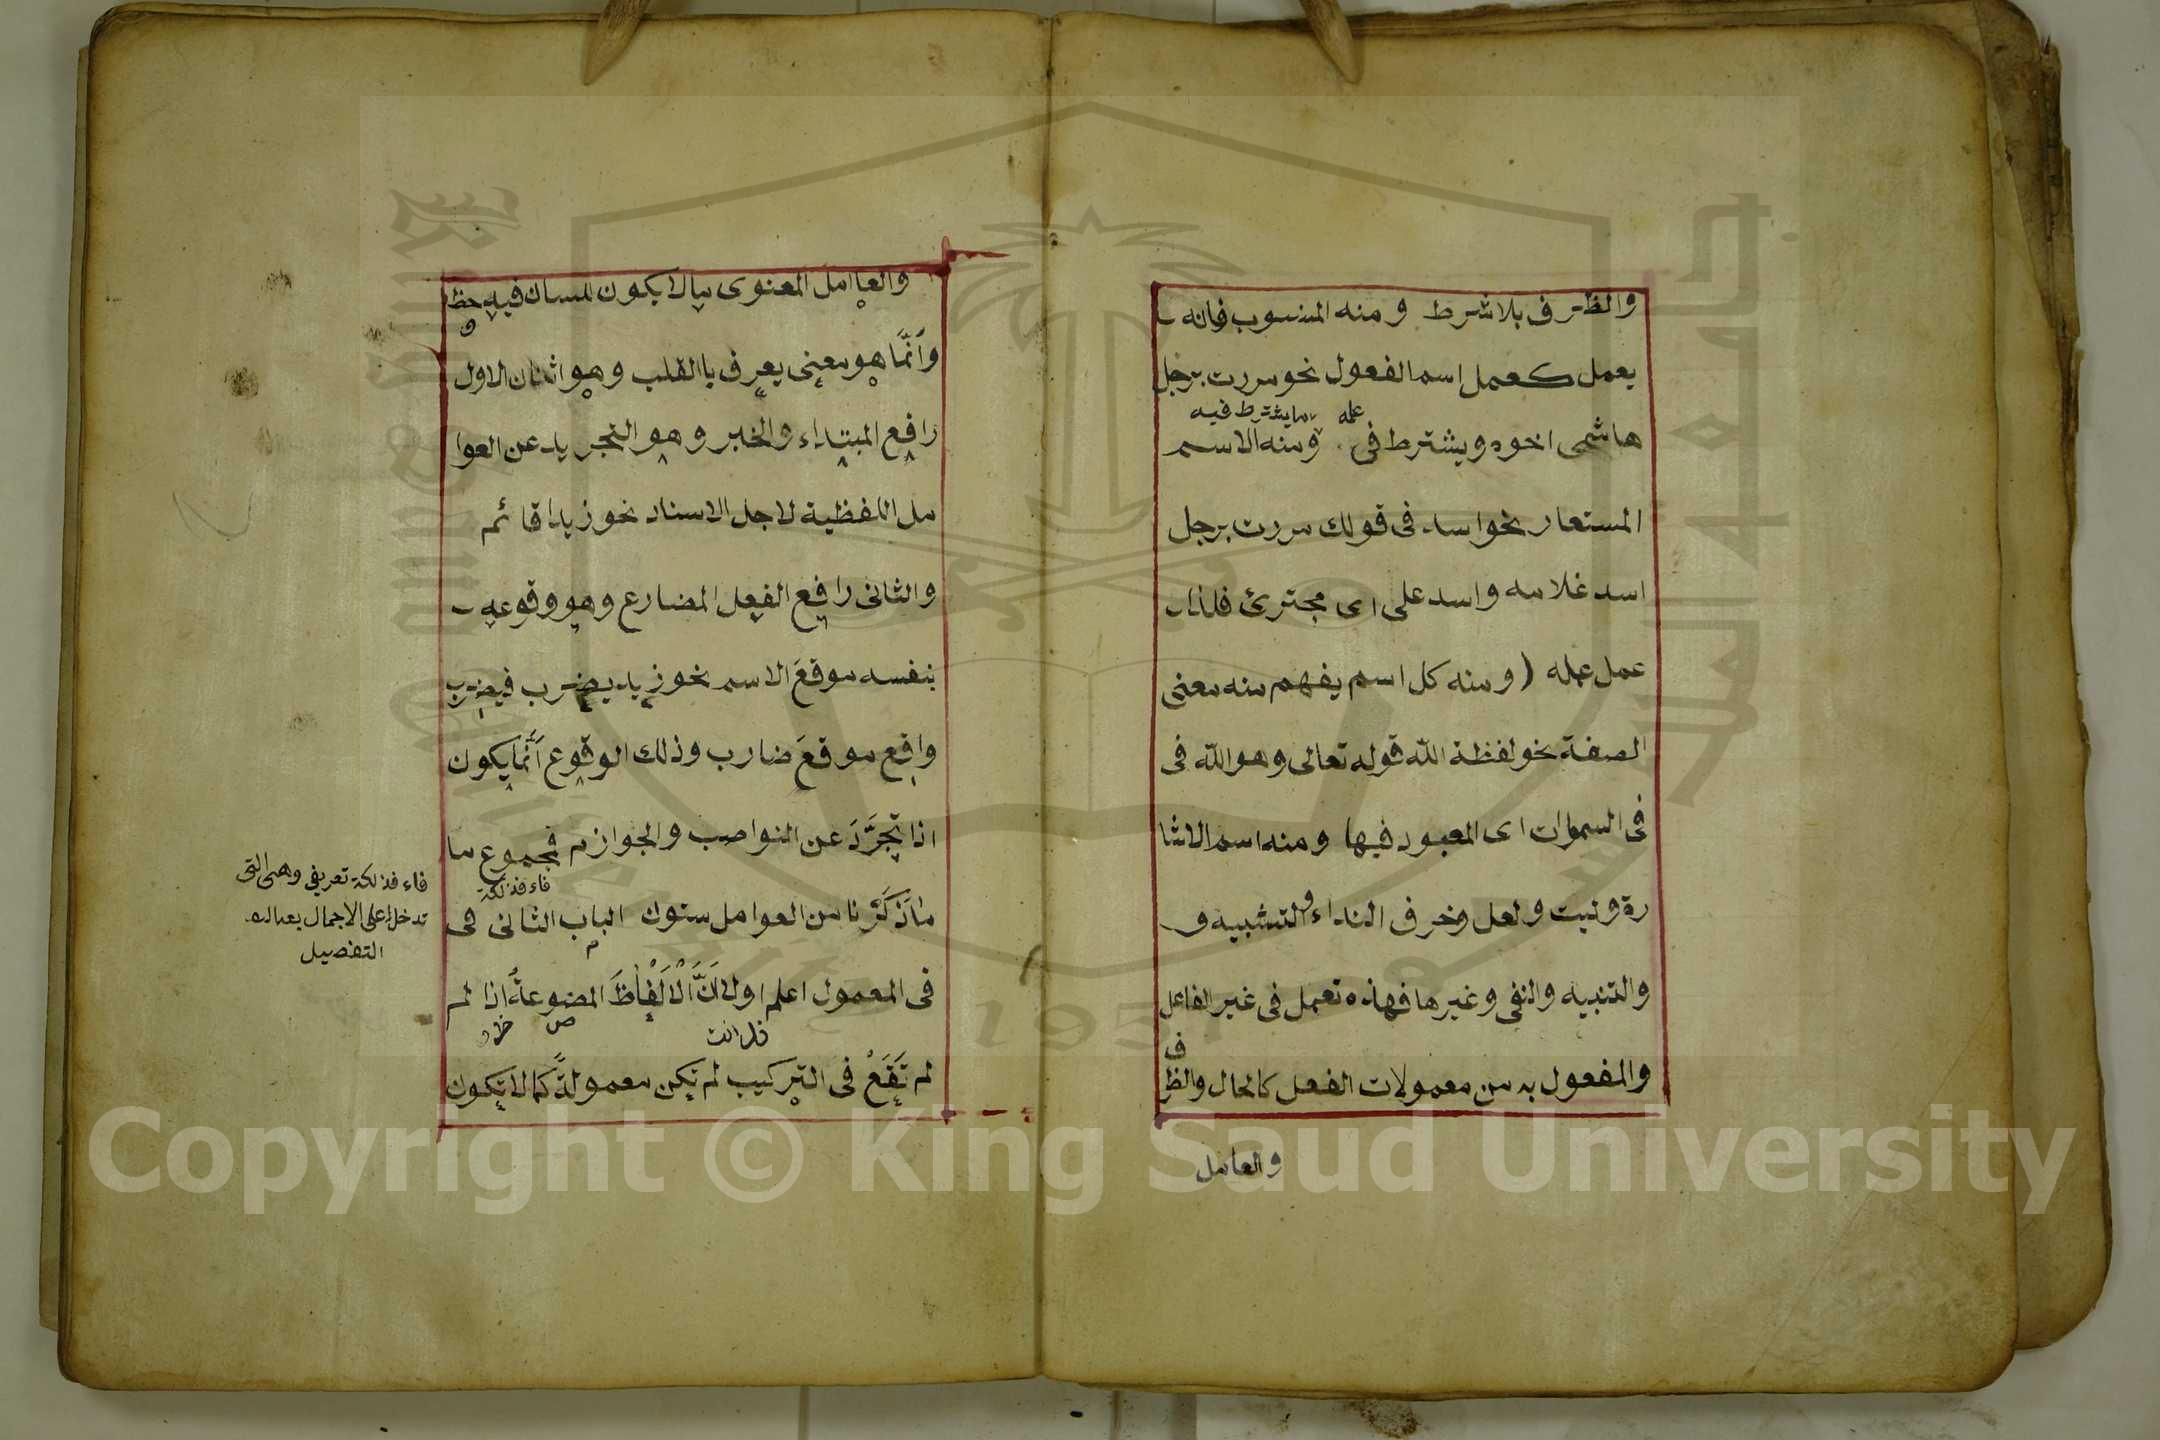 والظرف بلا شرط ومنه المنسوب فانه
يعمل كعمل اسم المفعول نحو مررت برجل
عمله ما يشترط فيه
هاشمى اخوه ويشترط فى ومنه الاسم
المستعار نحو اسد فى قولك مررت برجل
اسد غلامه واسد على اى مجترئ فلذا
عمل عمله ( ومنه كل اسم يفهم منه معنى
الصفة نحو لفظة الله قوله تعالى وهو الله فى
فى السموات اى المعبود فيها ومنه اسم الاشا
رة وليت ولعل وحرف النداء والتشبيه و
والتنبيه والنفى وغيرها فهذه تعمل فى غير الفاعل
والمفعول به من معمولات الفعل كالحال والظرف
والعامل
والعاامل المعنوى مالا يكون للسان فيه حظ
وَاَنَّمَا هو معنى يعرف باالقلب وهو اثنان الاول
رافع المبتداء والخبر وهو التجريد عن العوا
مل اللفظية لاجل الاسناد نحو زيد قائم
والثانى رافع الفعل المضارع وهو وقوعه
بنفسه موقعَ الاسم نحو زيد يضرب فيضرب
واقع موقعَ ضارب وذلك الوقوع اَنَّمَا يكون
اذا تَجَرَّدَ عن النواصب والجوازم فمجموع ما
فاء فذلكة
ماذَكَرْنا من العوامل ستون الباب الثانى فى
فى المعمول اعلم اولا اَنَّ اْلاَلْفَاظَ المضوعةُ اذا لم
قلدانت
لم تَقَعْ فى التركيب لم تكن معمولةً كما لا تكون
فاء فذلكة تعريفى وهى التى
تدخل على الاجمال بعد
التفصيل
Copyright © King Saud University
1957